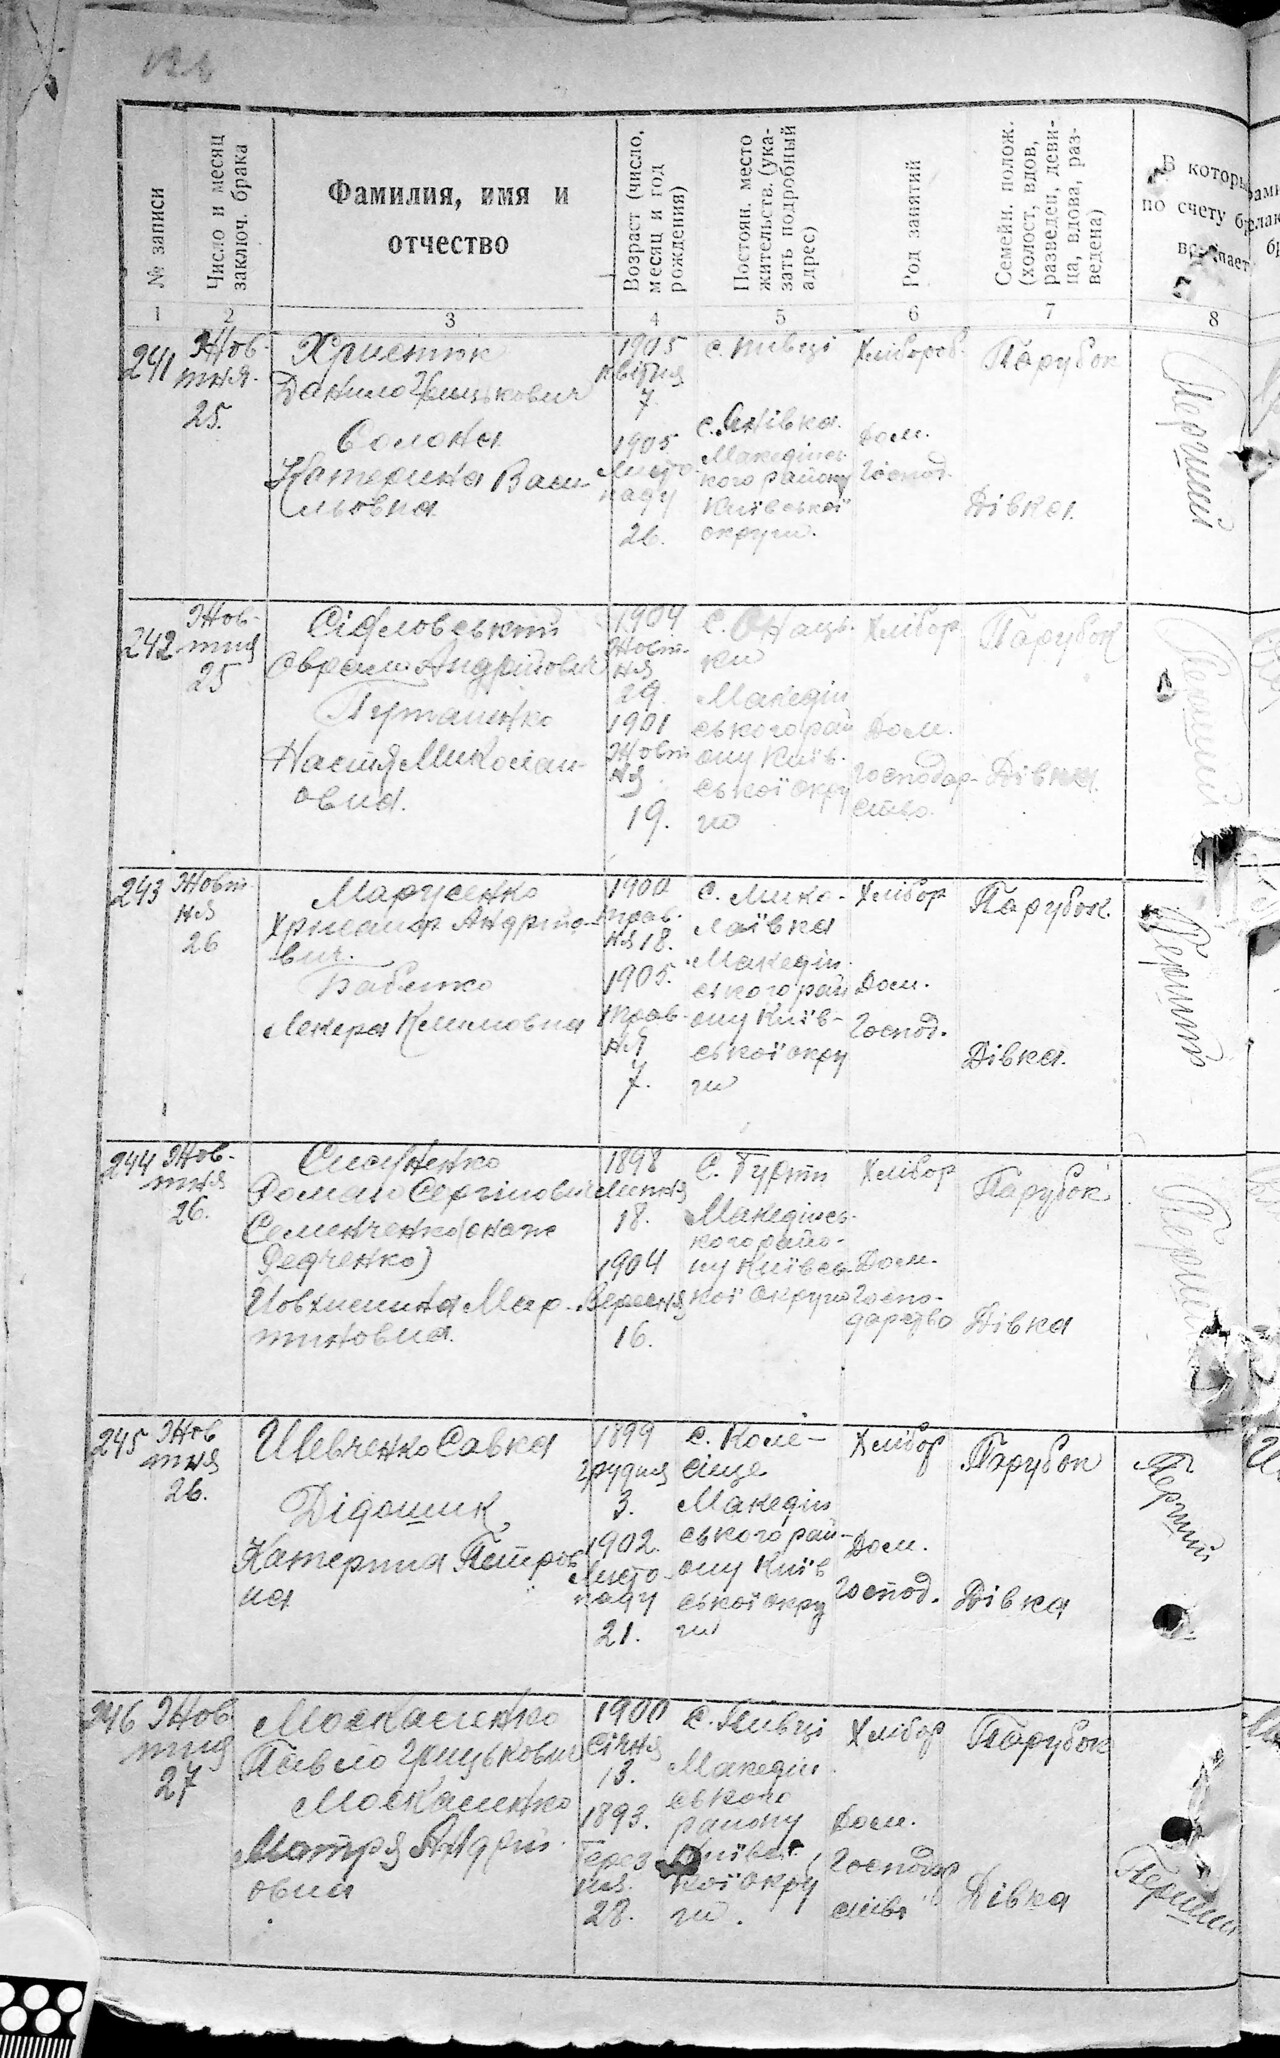 № записи
Число и месяц
заключ. брака
Фамилия, имя и
отчество
Возраст (число,
месяц и год
рождения)
Постоян. место
жительств. (ука-
зать подробный
адрес)
Род занятий
Семейн. полож.
(холост, вдов,
разведен, деви-
ца, вдова, раз-
ведена)
В которы
по счету б
1 2 3 4 5 6 7 8
241
Жов-
тня.
25.
Данило Грицькович
Солоха
Катерина Васи-
льовна
1905
квітня
7.
1905
Листо-
паду
26.
с. Пивці
с. Янівка.
Македінсь-
кого району
Київської
округи.
Хлібороб.
Дом.
Господ.
Парубок
Дівка.
Перший
242
Жов-
тня
25
Оврам Андрійович
Настя Миколаи-
овна.
1904
Жовт-
ня
29.
1901
Жовт
ня
19.
ки
Македін
ського рай
ону Київ-
ської окру
ги
Хлібор
Дом.
Господар-
ство.
Парубок
Дівка.
Перший
243
Жовт-
ня
26
Марусенко
Андрійо-
вич.
Бабенко
Лекера Климовна
1900
трав-
ня 18.
1905.
трав-
ня
7.
с. Мико-
лаївка
Македін
ського рай
ону Київ-
ської окру
ги
Хлібор
Дом.
Господ.
Парубок.
Дівка.
Перший
244
Жов-
тня
26.
Роман Сергійович
Семенченко (она ж
Редченко)
Йовхимина Мар-
тиновна.
1898
Липня
18.
1904
Вересня
16.
Македінсь-
кого райо-
ну Київсь-
кої округи
Хлібор
Дом.
Госпо-
дарство
Парубок
Дівка
245
Жов
тня
26.
Шевченко Савка
Дідошик
Катерина Петров
на
1899
грудня
3.
1902.
Листо-
паду
21.
Македін
ського рай-
ону Київ
ської окру
ги
Хлібор
Дом.
Господ.
Парубок
Дівка
Перший
246
Жов
тня
27
Москаленко
Павло Грицькович
Москаленко
Мотря Андрій-
овна
1900
Січня
13.
1893.
28.
с. Пивці
Македін
ського
району
Київсь
кої окру
ги.
Хлібор
Дом.
Господар
Парубок
Дівка
Перший